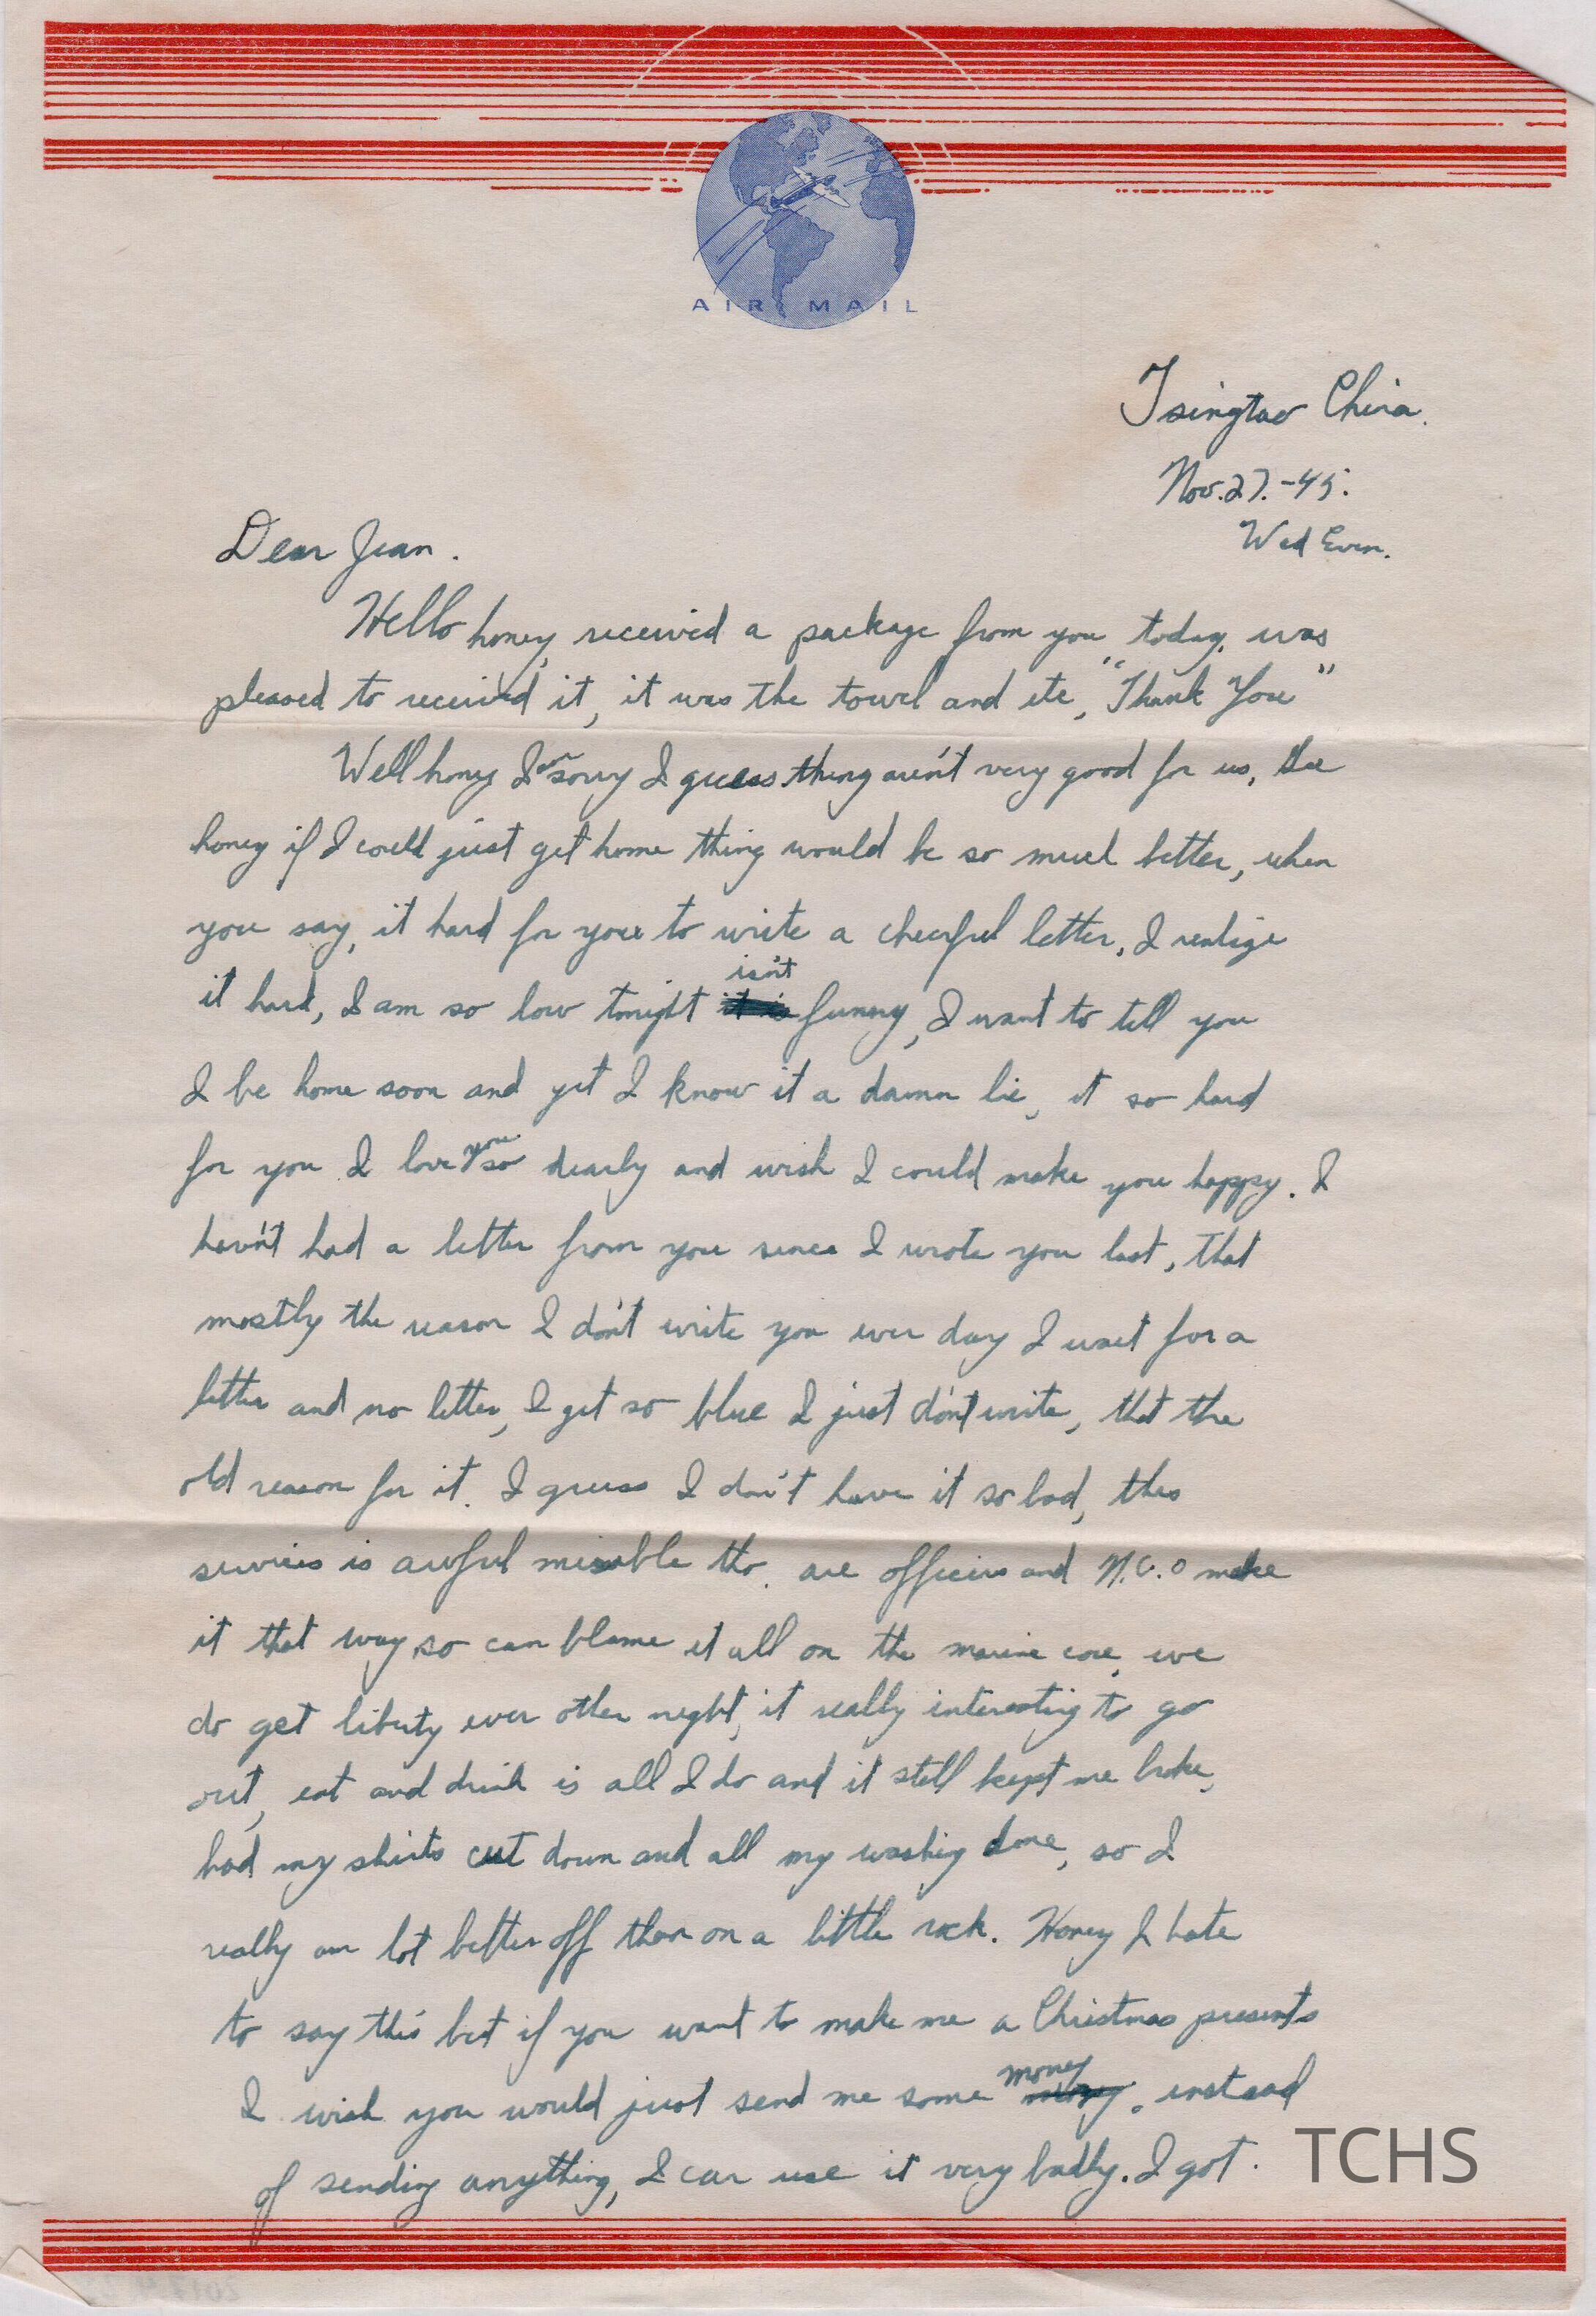 AIR MAIL
Tsingtao China.
Nov. 27. -45.
Wed Even.
Dear Jean.
Hello honey, received a package from you today, was
pleased to received it, it was the towel and etc, "Thank You"
Well honey I am sorry I guess thing aren't very good for us, the
honey if I could just get home thing would be so much better, when
you say, it hard for you to write a cheerful letter, I realize
it hard, I am so low tonight isn't funny, I want to tell you
I be home soon and yet I know it a damn lie, it so hard
for you I love you so dearly and wish I could make you happy. I
havn't had a letter from you since I wrote you last, that
mostly the reason I don't write you ever day I wait for a
letter and no letter, I get so blue I just don't write, that the
old reason for it. I guess I don't have it so bad, this
services is awful misable tho. are officers and N.C.O make
it that way, so can blame it all on the marine core, we
do get liberty ever other night, it really interesting to go
out, eat and drink is all I do and it still kept me broke,
had my shirts cut down and all my washing done, so I
really am lot better off than on a little rock. Honey I hate
to say this but if you want to make me a Christmas presents
I wish you would just send me some money. instead
of sending anything, I can use it very badly. I got.
TCHS